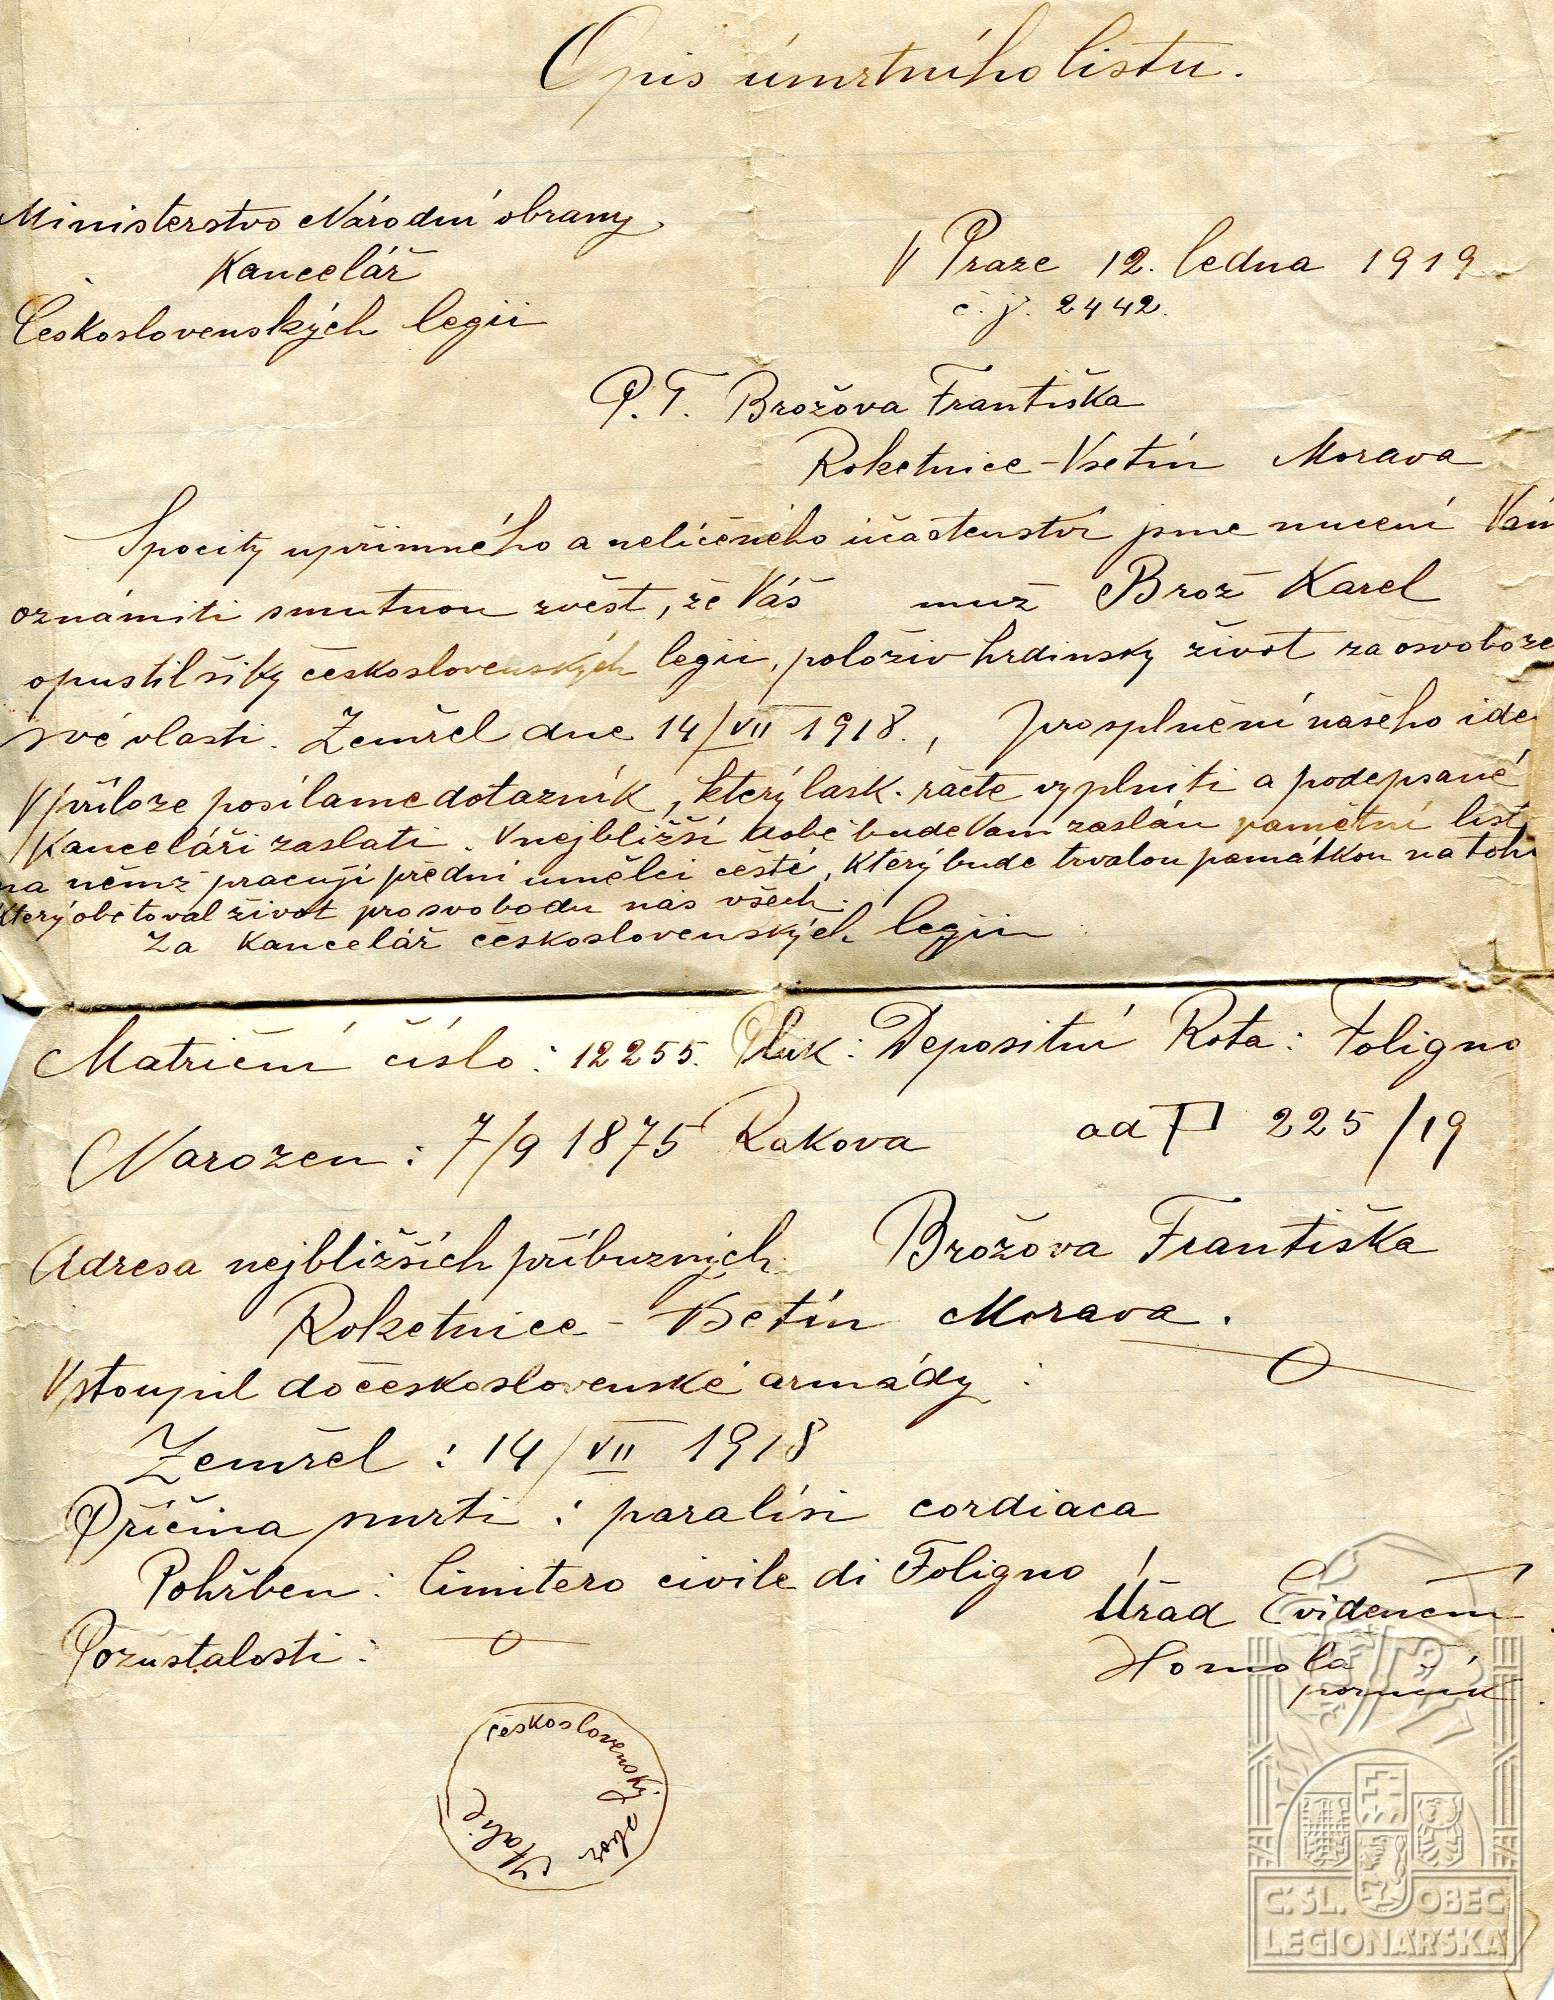 Opis úmrtního listu.
Ministerstvo Národní obrany
Kancelář
Československých legii
V Praze 12. ledna 1919
č. j. 2442.
P. T. Brožova Františka
Roketnice - Vsetín Morava
Spocity upřimného a neličeného účastenství jsme nuceni Vám
oznámiti smutnou zvěst, že Váš muž Brož Karel
opustil šiky československých legii, položiv hrdinsky život za osvoboze
své vlasti. Zemřel dne 14/VII 1918., pro splnění našeho ide
V příloze posílame dotazník, který lask. račte vyplniti a podepsané
Kanceláři zaslati. V nejbližší době bude Vam zaslán pamětní list
na němž pracují přední umělci čeští, který bude trvalou památkou na toho
který obětoval život pro svobodu nás všech.
Za kancelář československých legii
Matriční číslo: 12255. Pluk: Depositní Rota: Foligno
Narozen: 7/9 1875 Rakova ad 225/19
Adresa nejbližších příbuzných Brožova Františka
Roketnice - Vsetín Morava.
Vstoupil do československé armády :
Zemřel : 14/VII 1918
Příčina smrti : paralisi cordiaca
Pohřben : Cimitero civile di Foligno
Pozustalosti :
Úřad Evidenční
Homola
poručík
československý sbor
Italie
Č. SL. OBEC
LEGIONÁŘSKÁ